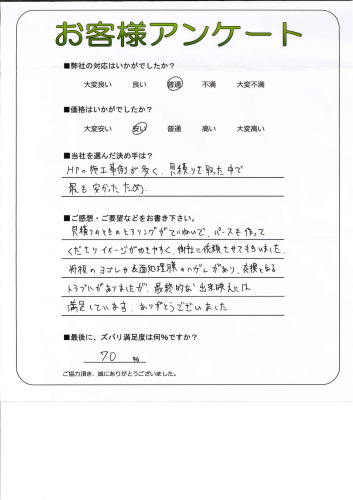 お客様アンケート
■弊社の対応はいかがでしたか？
大変良い 良い 普通 不満 大変不満
■価格はいかがでしたか？
大変安い 安い 普通 高い 大変高い
■当社を選んだ決め手は？
HPの施工事例が多く、見積りを取った中で
最も安かったため。
■ご感想・ご要望などをお書き下さい。
見積りのときのヒアリングがていねいで、パースも作って
くださりイメージがわきやすく、御社に依頼させてもらいました。
折板のヨゴレや表面処理膜のハガレがあり、交換となる
トラブルがありましたが、最終的な出来映えには
満足しています。ありがとうございました
■最後に、ズバリ満足度は何%ですか？
70 %
ご協力頂き、誠にありがとうございました。